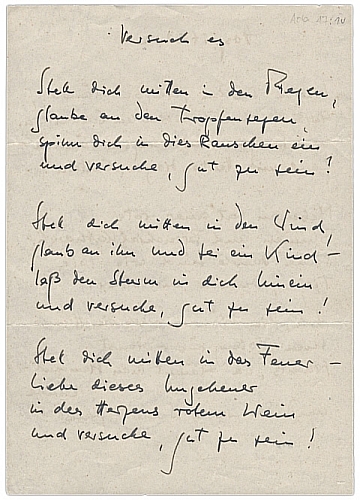 Versuch es
Stell dich mitten in den Regen,
glaube an den Tropfensegen
spinn dich in dies Rauschen ein
und versuche, gut zu sein!
Stell dich mitten in den Wind,
glaub an ihn und sei ein Kind –
laß den Sturm in dich hinein
und versuche, gut zu sein!
Stell dich mitten in das Feuer –
liebe dieses Ungeheuer
in des Herzens rotem Wein
und versuche, gut zu sein!